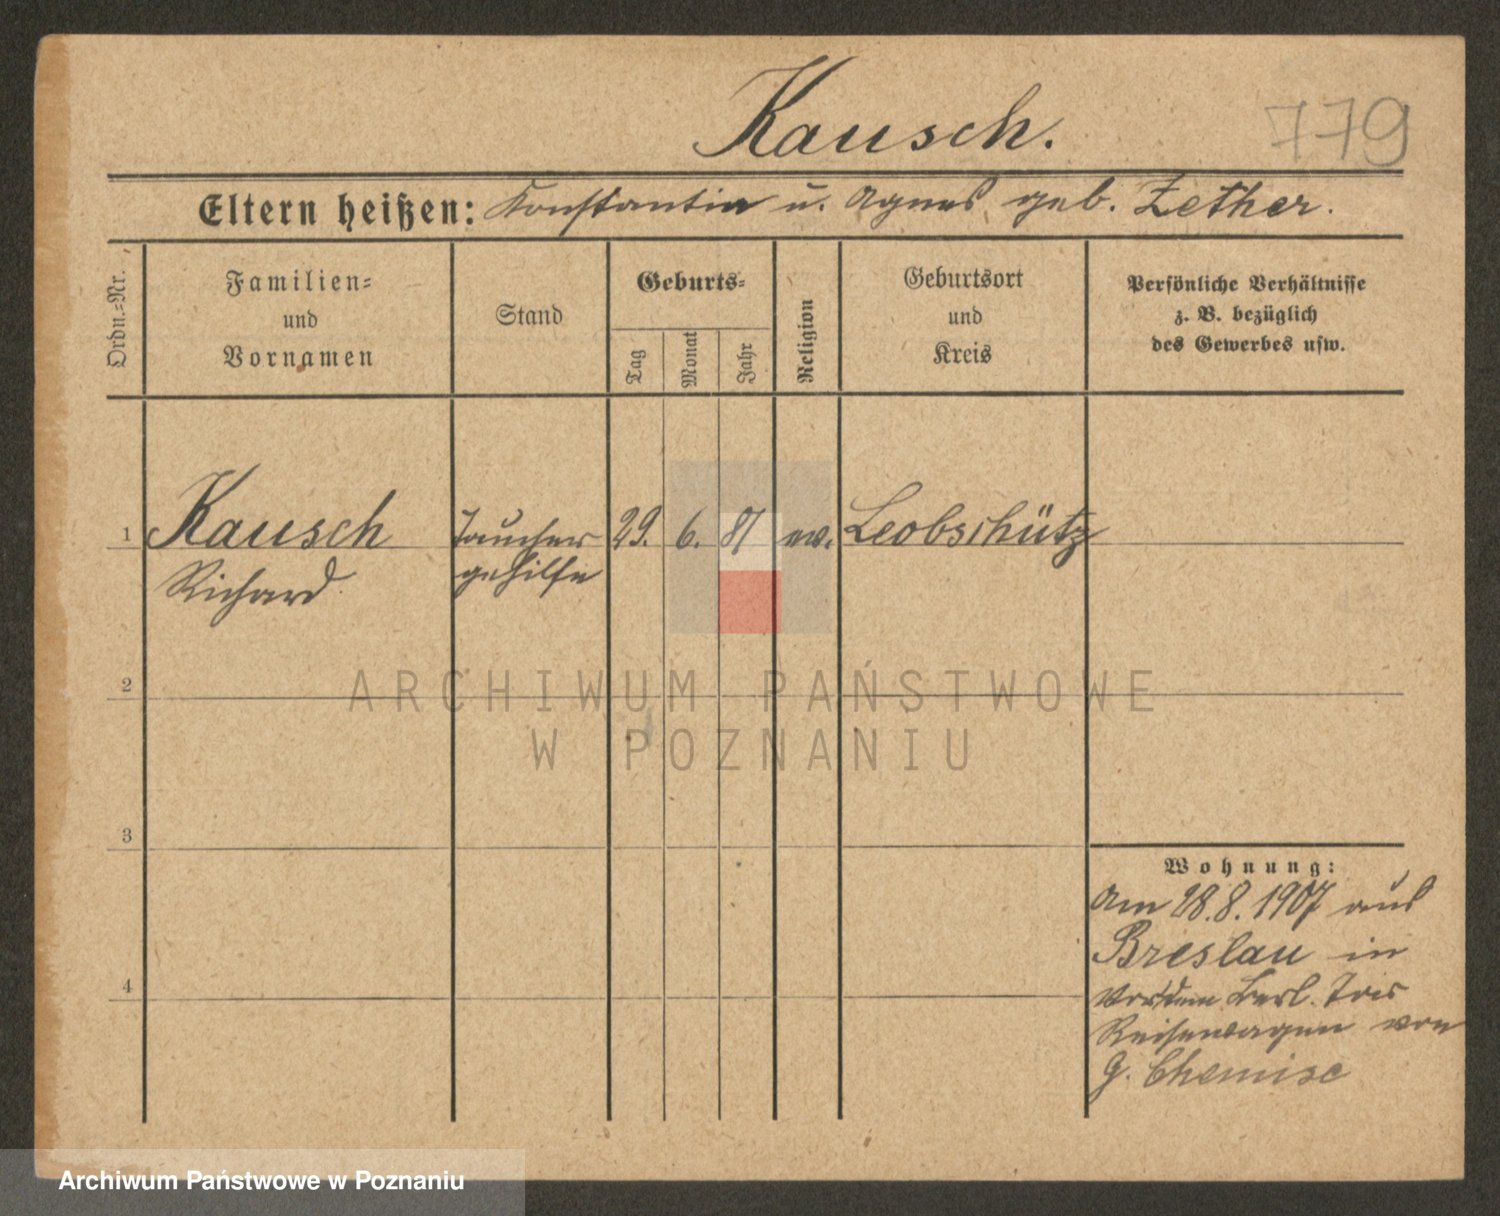 Kausch.
779
Eltern heißen: Konstantin u. Agnes geb. Zether.
Ordn.=Nr.
Familien=
und
Vornamen
Stand
Geburts=
Tag
Monat
Jahr
Religion
Geburtsort
und
Kreis
Persönliche Verhältnisse
z. B. bezüglich
des Gewerbes usw.
1 Kausch Taucher 29. 6. 87 ev. Leobschütz
Richard gehilfe
2
3
4
Wohnung:
Am 28.8.1907 aus
Breslau in
Vor dem Berl. Tor
Reisewagen von
G. Chemise
ARCHIWUM PAŃSTWOWE
W POZNANIU
Archiwum Państwowe w Poznaniu